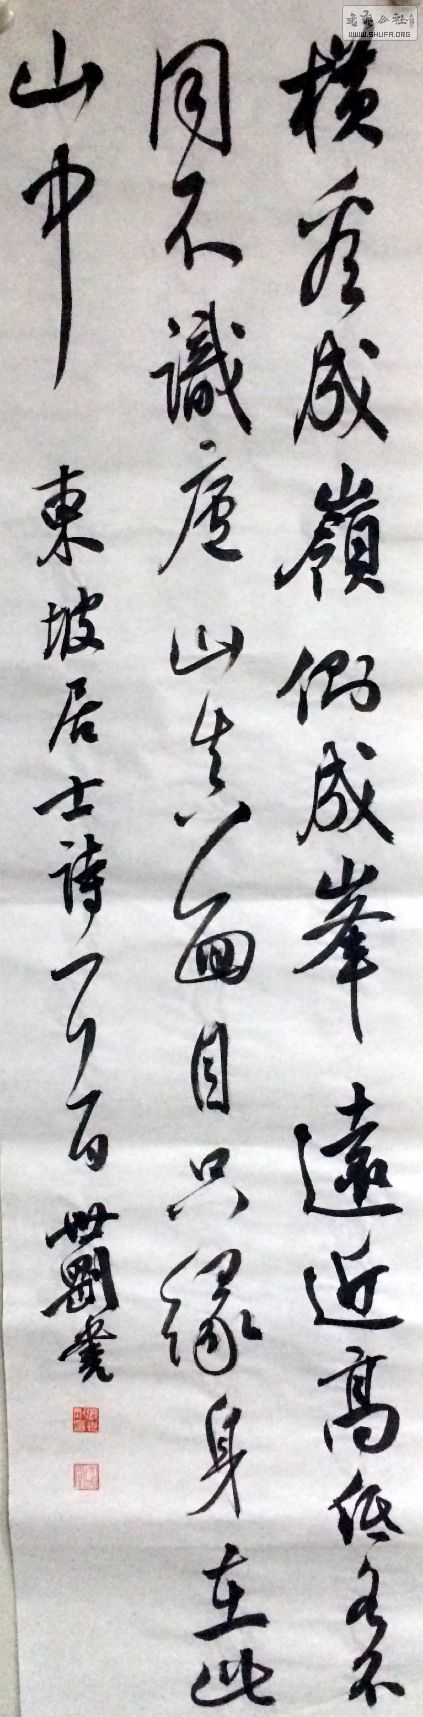 横看成嶺側成峯遠近高低各不
同不識廬山真面目只緣身在此
山中
東坡居士詩一首世剛書
WWW.SHUFA.ORG